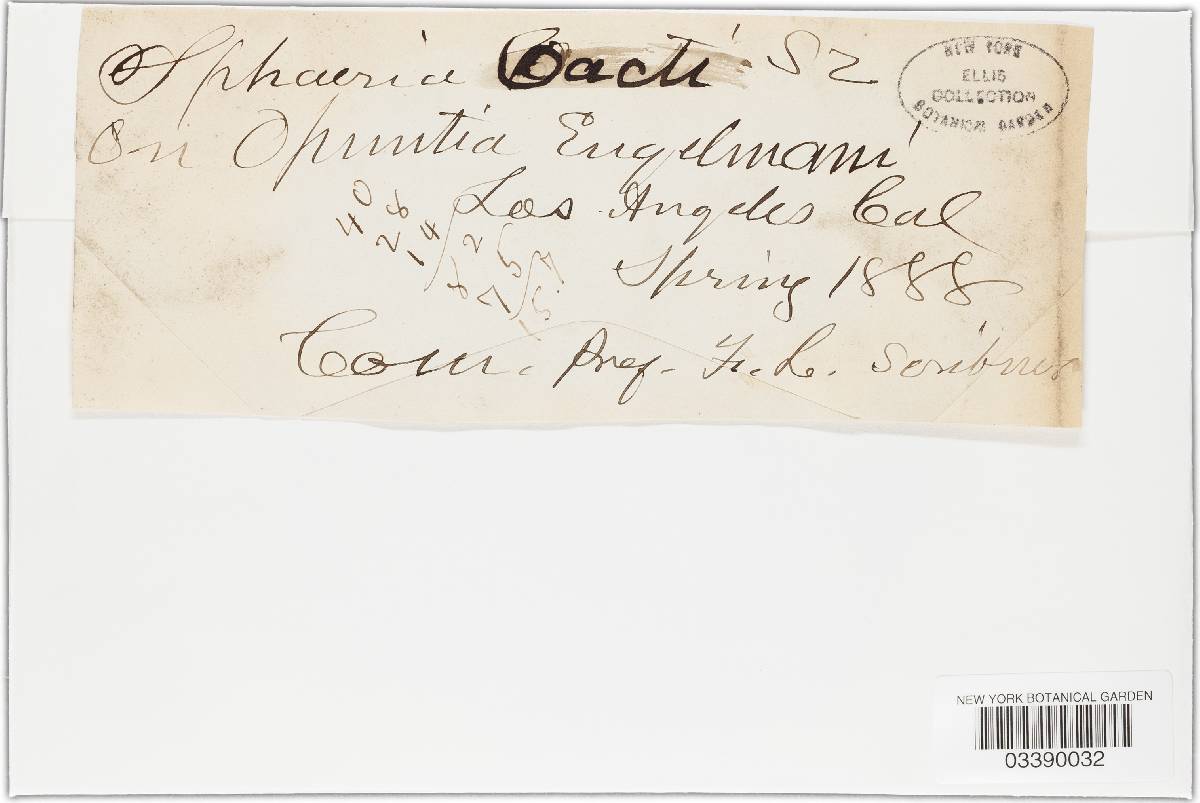 Sphaeria Cacti Sz
On Opuntia Engelmani
Los Angeles Cal
Spring 1888
Com. Prof. F. L. Scribner
40
28
14
NEW YORK
ELLIS
COLLECTION
BOTANICAL GARDEN
NEW YORK BOTANICAL GARDEN
03390032